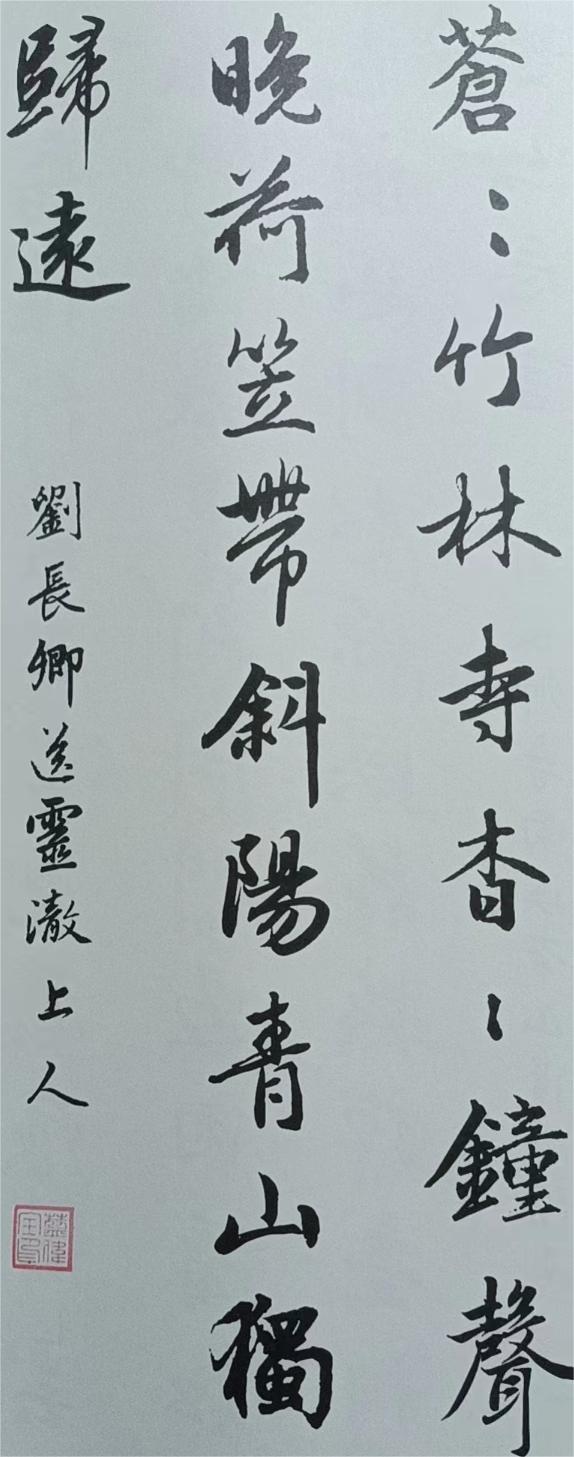 蒼〻竹林寺杳〻鐘聲
晚荷笠帶斜陽青山獨
歸遠
劉長卿送靈澈上人